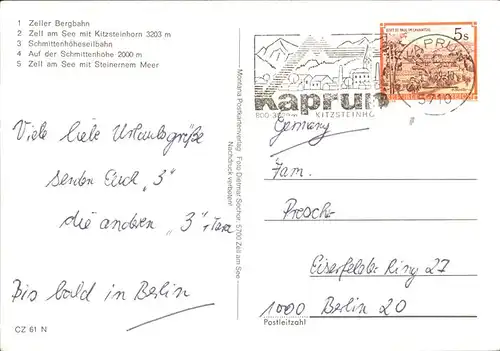 1 Zeller Bergbahn
2 Zell am See mit Kitzsteinhorn 3203 m
3 Schmittenhöheseilbahn
4 Auf der Schmittenhöhe 2000 m
5 Zell am See mit Steinernem Meer
Viele liebe Urlaubsgrüße
senden Euch „3"
die anderen „3" + Tara
Bis bald in Berlin
CZ 61 N
Montana Postkartenverlag Foto Dietmar Sochor, 5700 Zell am See
Nachdruck verboten!
STIFT ST. PAUL IM LAVANTTAL
5s
KAPRUN
5710
Kaprun
KITZSTEINHO
Germany
Fam.
Eiserfelder Ring 27
1000 Berlin 20
Postleitzahl